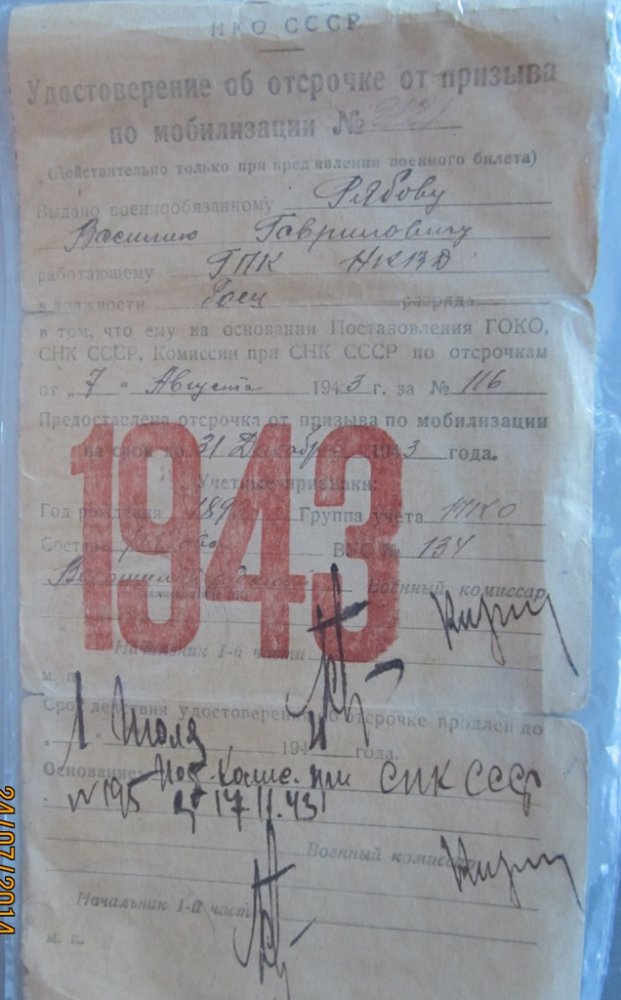 НКО СССР
Удостоверение об отсрочке от призыва
по мобилизации №
(Действительно только при предъявлении военного билета)
Выдано военнообязанному Рябову
Василию Гавриловичу
работающему ГПК НКВД
в должности боец разряда
в том, что ему на основании Постановления ГОКО,
СНК СССР, Комиссии при СНК СССР по отсрочкам
от „7" Августа 1943 г. за № 116
Предоставлена отсрочка от призыва по мобилизации
на срок до 31 Декабря 1943 года.
1943
Учетные признаки:
Год рождения Группа учета
Состав рядовой ВУС № 134
Ворошиловградский Военный комиссар
Начальник 1-й части
м. п.
Срок действия удостоверения об отсрочке продлен до
1 Июля 194 4 года.
Основание: Пос. Комис. при СНК СССР
№ 195 от 17.11.43
Военный комиссар
Начальник 1-й части
м. п.
21/07/2014